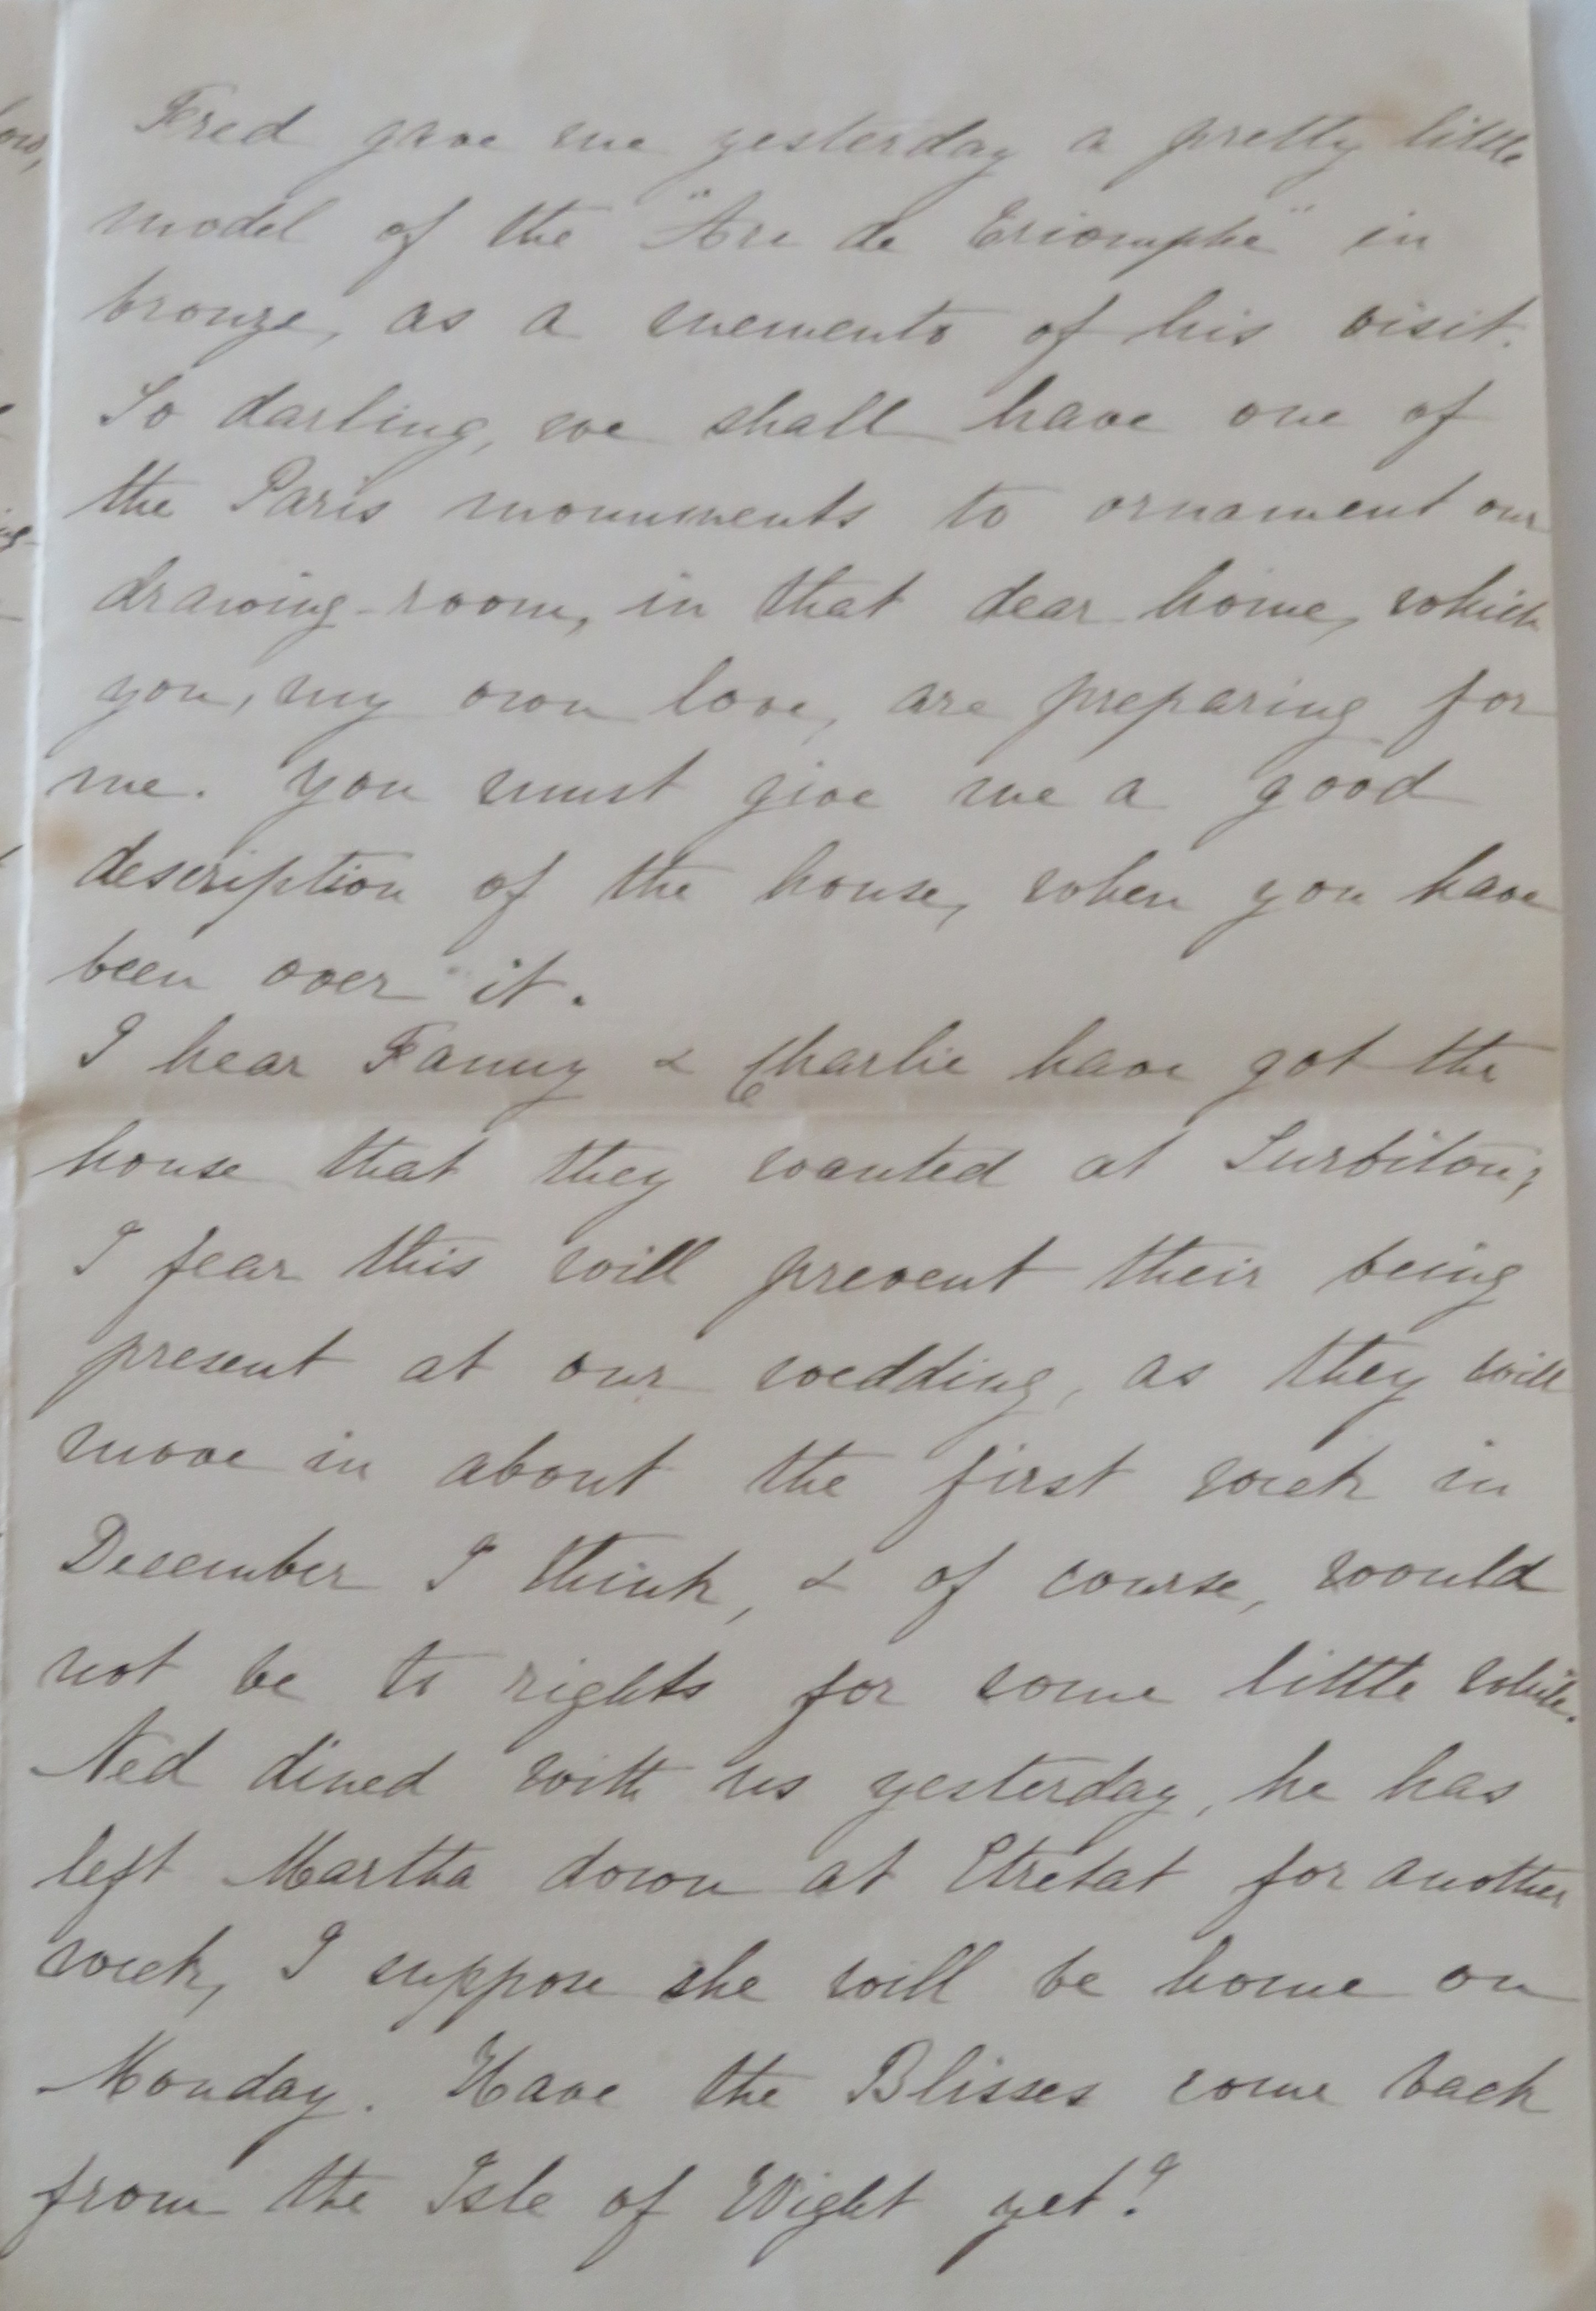 Fred gave me yesterday a pretty little
model of the "Arc de Triomphe" in
bronze, as a memento of his visit.
So darling, we shall have one of
the Paris monuments to ornament our
drawing-room, in that dear home, which
you, my own love, are preparing for
me. You must give me a good
description of the house, when you have
been over it.
I hear Fanny & Charlie have got the
house that they wanted at Surbiton;
I fear this will prevent their being
present at our wedding, as they will
move in about the first week in
December I think, & of course, would
not be to rights for some little while.
Ned dined with us yesterday, he has
left Martha down at Etretat for another
week, I suppose she will be home on
Monday. Have the Blisses come back
from the Isle of Wight yet?